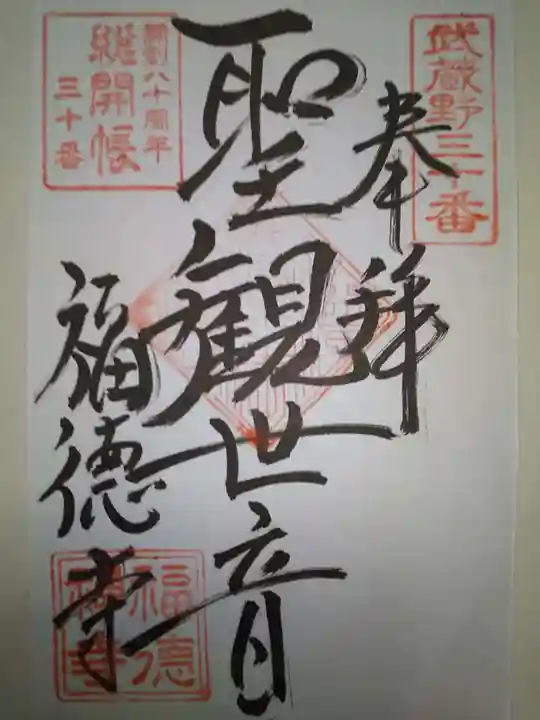 武蔵野三十番
奉拝
聖観世音
開創八十周年
総開帳
三十番
福徳寺
福徳
禅寺